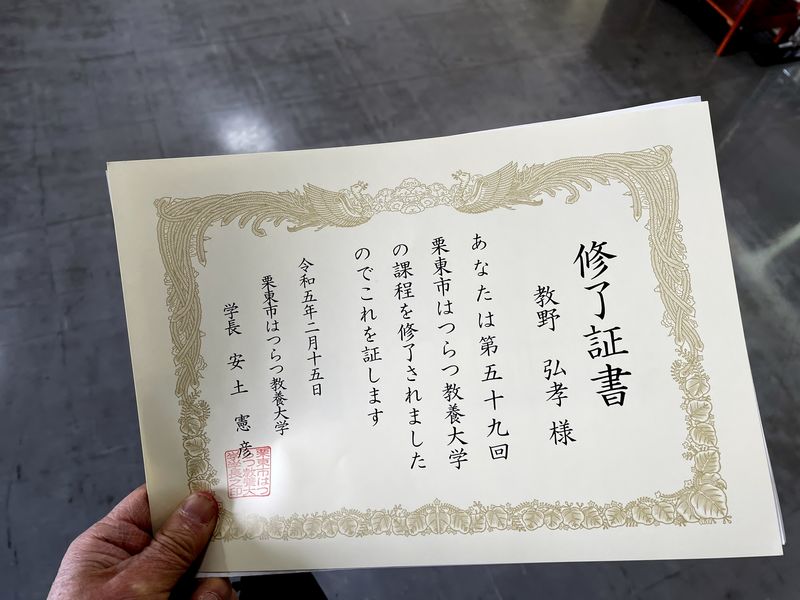 修了証書
教野 弘孝 様
あなたは第五十九回
栗東市はつらつ教養大学
の課程を修了されました
のでこれを証します
令和五年二月十五日
栗東市はつらつ教養大学
学長 安土 憲彦
栗東市はつ
らつ教養大
学学長之印